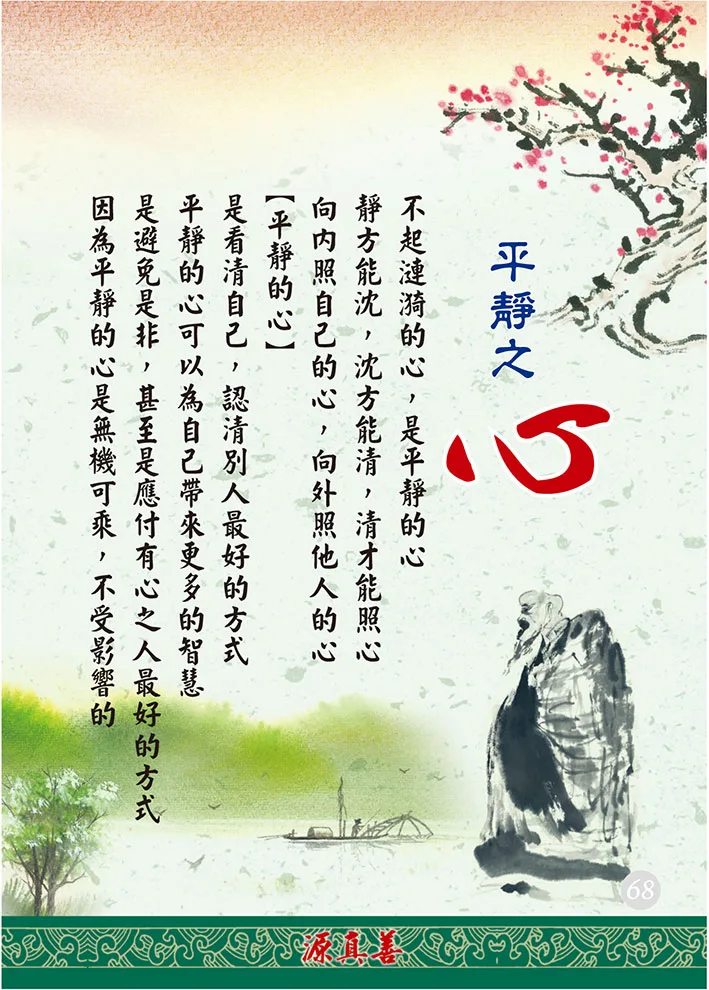 平靜之
心
不起漣漪的心，是平靜的心
靜方能沈，沈方能清，清才能照心
向內照自己的心，向外照他人的心
【平靜的心】
是看清自己，認清別人最好的方式
平靜的心可以為自己帶來更多的智慧
是避免是非，甚至是應付有心之人最好的方式
因為平靜的心是無機可乘，不受影響的
68
源真善